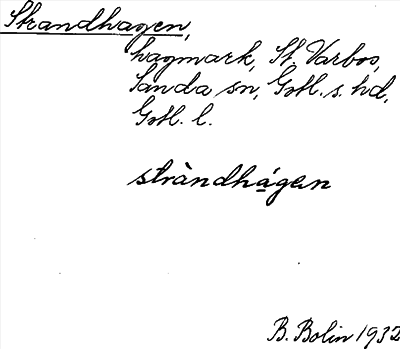 Strandhagen,
hagmark, St. Varbos,
Sanda sn, Gotl. s. hd,
Gotl. l.
stràndhágen
B. Bolin 1932